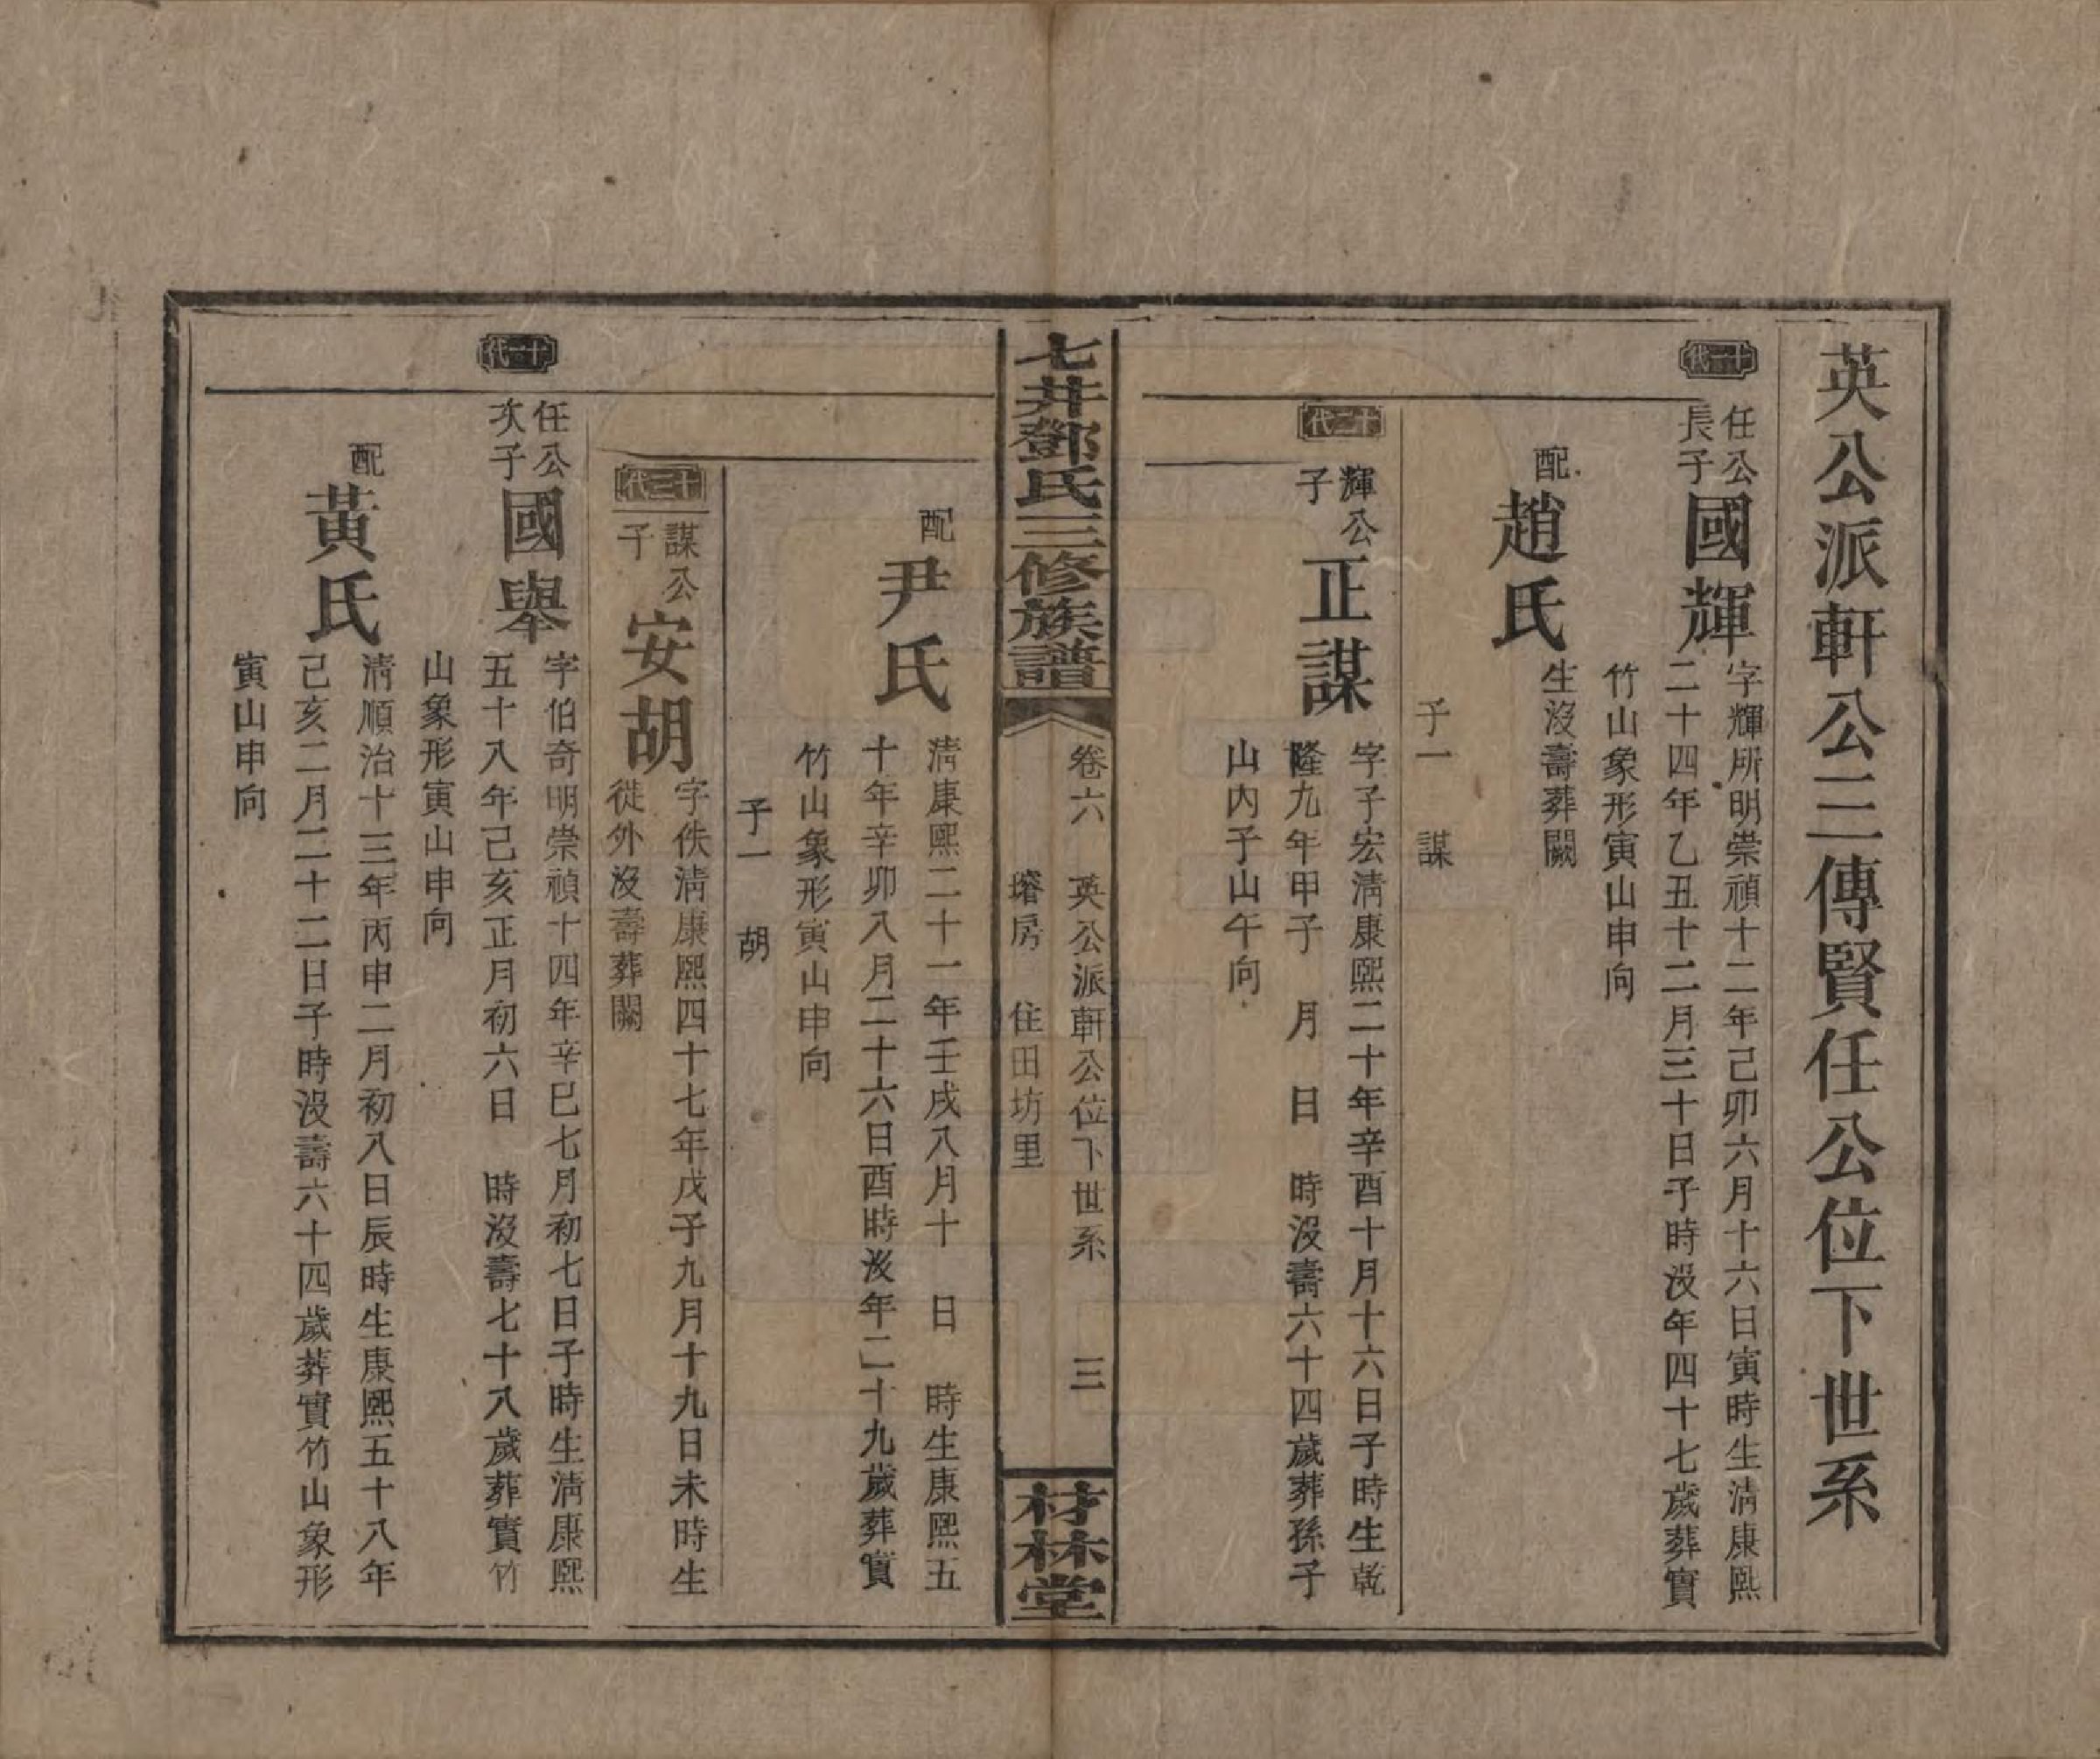 英公派軒公三傳賢任公位下世系
十一代
任公長子
國輝
字輝所明崇禎十二年己卯六月十六日寅時生淸康熙
二十四年乙丑十二月三十日子時沒年四十七歲葬實
竹山象形寅山申向
配
趙氏
生沒壽葬闕
子一 謀
十二代
輝公子
正謀
字子宏淸康熙二十年辛酉十月十六日子時生乾
隆九年甲子 月 日 時沒壽六十四歲葬孫子
山內子山午向
七井鄧氏三修族譜
卷六 英公派軒公位下世系 三
房 住田坊里
材林堂
配
尹氏
淸康熙二十一年壬戌八月十 日 時生康熙五
十年辛卯八月二十六日酉時沒年二十九歲葬實
竹山象形寅山申向
子一 胡
十三代
謀公子
安胡
字佚淸康熙四十七年戊子九月十九日未時生
徙外沒壽葬闕
十一代
任公次子
國舉
字伯奇明崇禎十四年辛巳七月初七日子時生淸康熙
五十八年己亥正月初六日 時沒壽七十八歲葬實竹
山象形寅山申向
配
黃氏
淸順治十三年丙申二月初八日辰時生康熙五十八年
己亥二月二十二日子時沒壽六十四歲葬實竹山象形
寅山申向